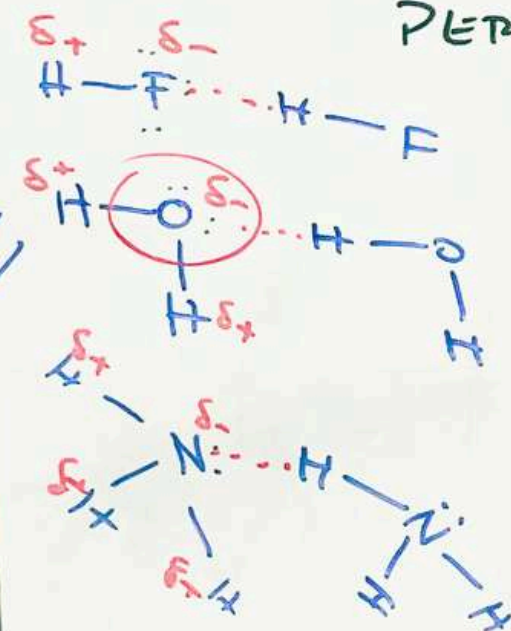 PER
δ+ δ-
H F H F
δ+ δ-
H O H O
H δ+ H
δ+
H δ-
N H
δ+ H N
δ+ H H H